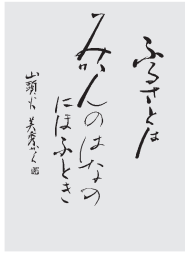 ふるさとは
みかんのはなの
にほふとき
山頭火